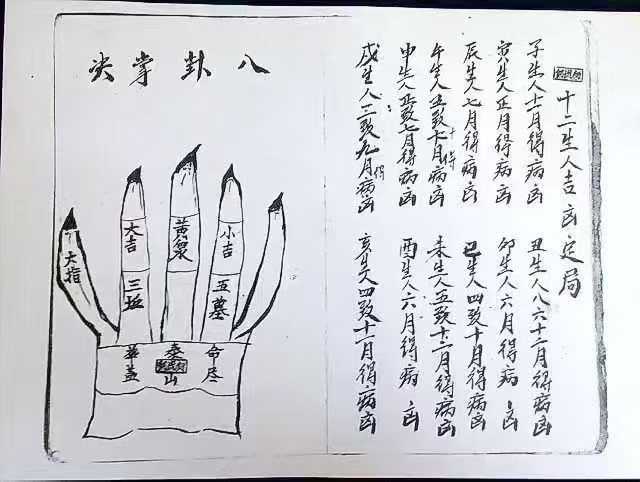 十二生人吉凶定局
子生人十一月得病凶
丑生人八六十二月得病凶
寅生人正月得病凶
卯生人六月得病凶
辰生人七月得病凶
巳生人四致十月得病凶
午生人五致十月得病凶
未生人五致十二月得病凶
申生人正致七月得病凶
酉生人六月得病凶
戌生人三致九月得病凶
亥生人四致十一月得病凶
八卦掌决
小吉
黄泉
大吉
大指
五墓
三坵
命尽
泰山
華盖